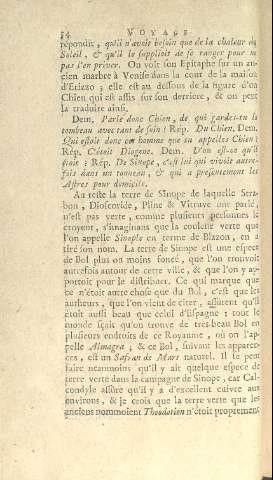 54 VOYAGE
répondit, qu'il n'avoit besoin que de la chaleur du
Soleil, & qu'il le supplioit de se ranger pour ne
pas l'en priver. On voit son Epitaphe sur un an-
cien marbre à Venise dans la cour de la maison
d'Erizzo; elle est au dessous de la figure d'un
Chien qui est assis sur son derriere, & on peut
la traduire ainsi.
Dem. Parle donc Chien, de qui gardes-tu le
tombeau avec tant de soin? Rép. Du Chien. Dem.
Qui estoit donc cet homme que tu appelles Chien?
Rép. C'étoit Diogene. Dem. D'où estoit-il?
Rép. De Sinope, c'est lui qui vivoit autre-
fois dans un tonneau, & qui a présentement les
Astres pour domicile.
Au reste la terre de Sinope de laquelle Stra-
bon, Dioscoride, Pline & Vitruve ont parlé,
n'est pas verte, comme plusieurs personnes le
croyent, s'imaginans que la couleur verte que
l'on appelle Sinople en terme de Blazon, en a
tiré son nom. La terre de Sinope est une espece
de Bol plus ou moins foncé, que l'on trouvoit
autrefois autour de cette ville, & que l'on y ap-
portoit pour le distribuer. Ce qui marque que
ce n'étoit autre chose que du Bol, c'est que les
autheurs, que l'on vient de citer, assurent qu'il
étoit aussi beau que celui d'Espagne: tout le
monde sçait qu'on trouve de tres-beau Bol en
plusieurs endroits de ce Royaume, où on l'ap-
pelle Almagra; & ce Bol, suivant les apparen-
ces, est un Safran de Mars naturel. Il se peut
faire neanmoins qu'il y ait quelque espece de
terre verte dans la campagne de Sinope, car Cal-
condyle assure qu'il y a d'excellent cuivre aux
environs, & je crois que la terre verte que les
anciens nommoient Theodotion n'étoit proprement